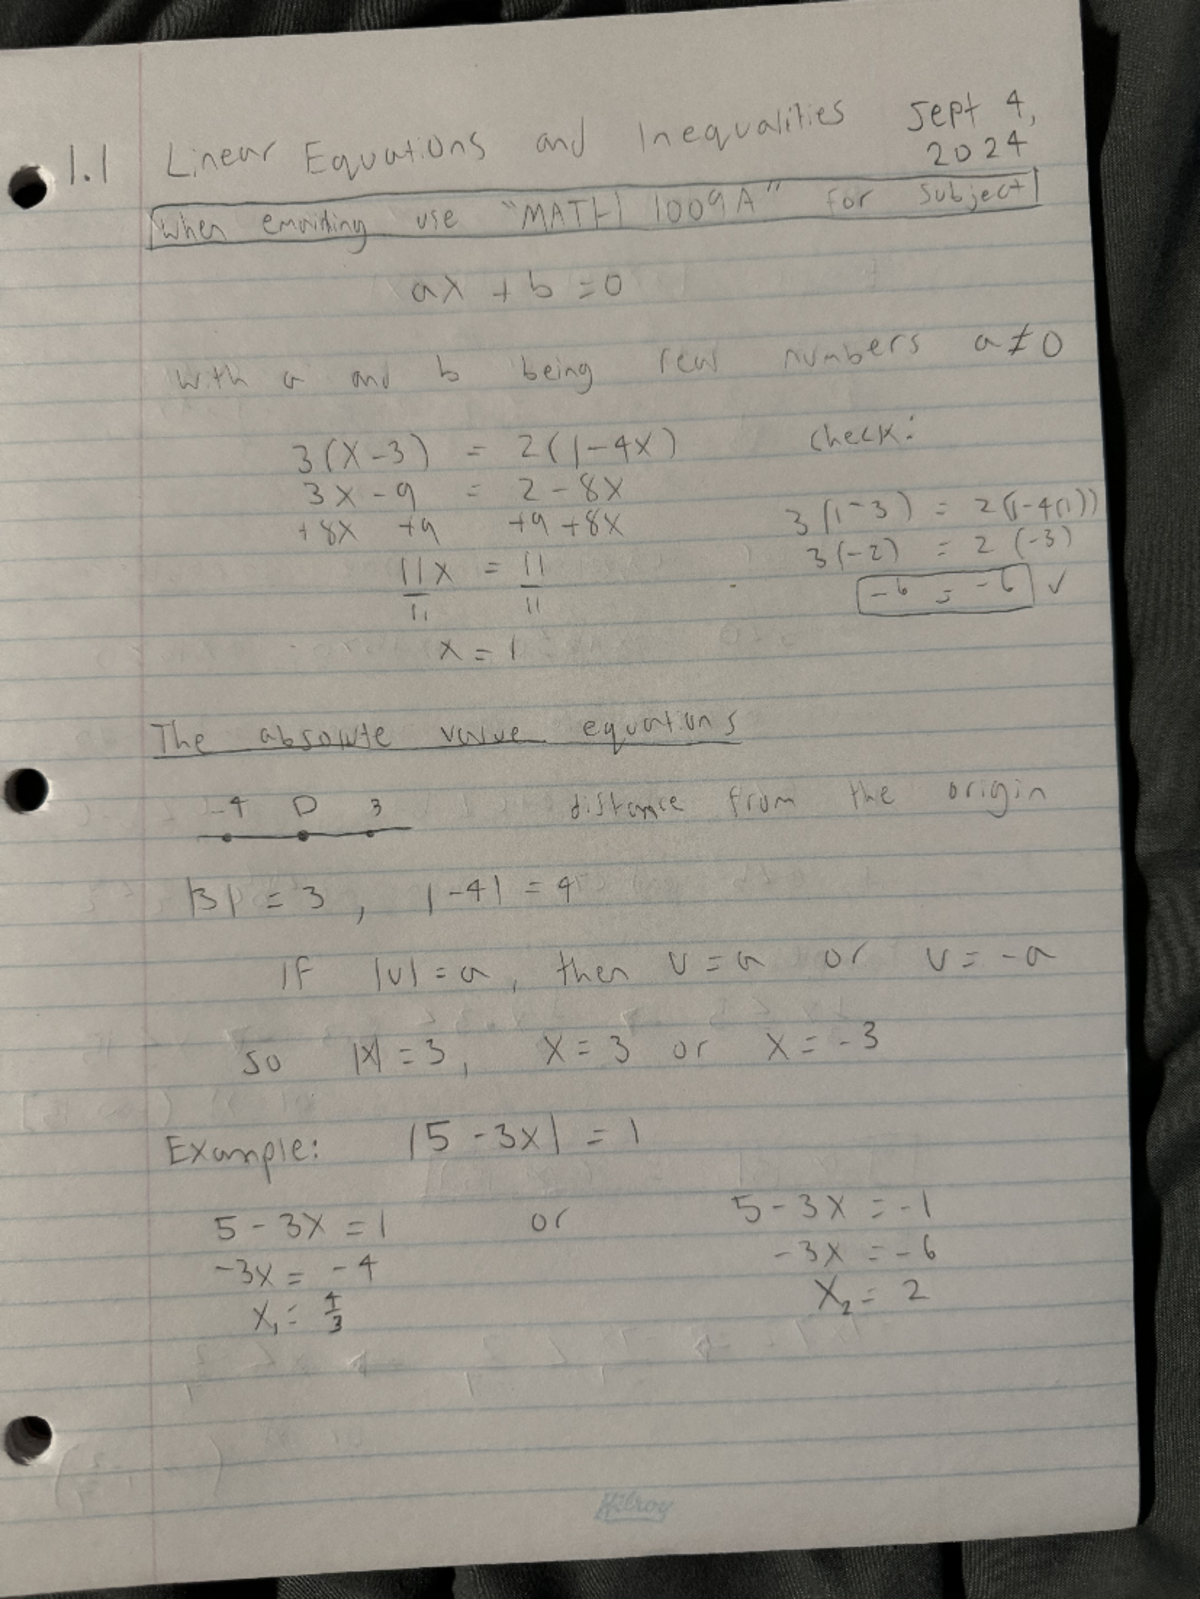 1.1 Linear Equations and Inequalities Sept 4, 2024
When emailing use "MATH 1009A" for subject
ax + b = 0
with a and b being real numbers a ≠ 0
3(x-3) = 2(1-4x)
3x - 9 = 2 - 8x
+8x +9 +9 +8x
11x = 11
11 11
x = 1
check:
3(1-3) = 2(1-4(1))
3(-2) = 2(-3)
-6 = -6 ✓
The absolute value equations
-4 0 3 distance from the origin
|3| = 3, |-4| = 4
If |u| = a, then u = a or u = -a
so |x| = 3, x = 3 or x = -3
Example: |5 - 3x| = 1
5 - 3x = 1 or 5 - 3x = -1
-3x = -4 -3x = -6
x₁ = 4/3 x₂ = 2
Hilroy